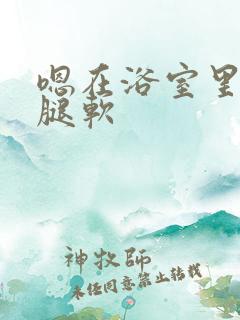 嗯在浴室里
腿软
神牧师
未经同意禁止转载